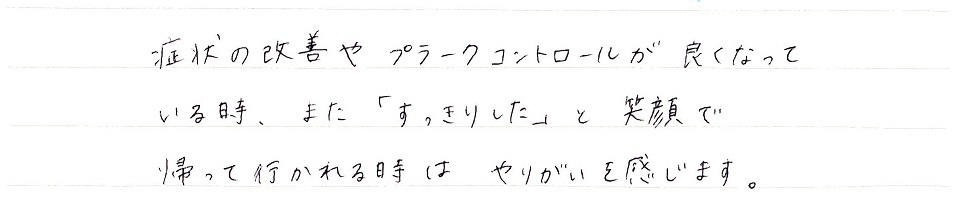 症状の改善や プラークコントロールが 良くなって
いる時、また「すっきりした」と 笑顔で
帰って行かれる時は やりがいを感じます。